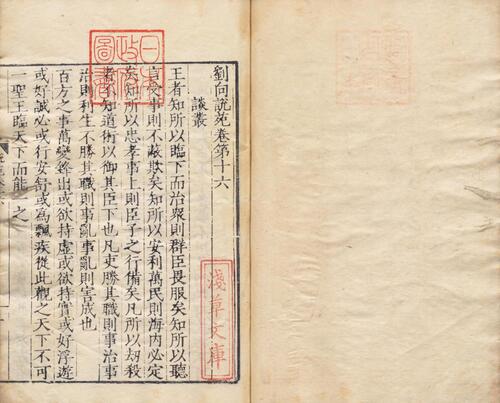 劉向說苑卷第十六
談叢
王者知所以臨下而治衆則群臣畏服矣知所以聽
言受事則不蔽欺矣知所以安利萬民則海内必定
矣知所以忠孝事上則臣子之行備矣凡所以劫殺
者不知道術以御其臣下也凡吏勝其職則事治事
治則利生不勝其職則事亂事亂則害成也
百方之事萬變鋒出或欲持虛或欲持實或好浮遊
或好誠必或行安舒或為飄疾從此觀之天下不可
一聖王臨天下而能一之
日本
政府
圖書
淺草文庫